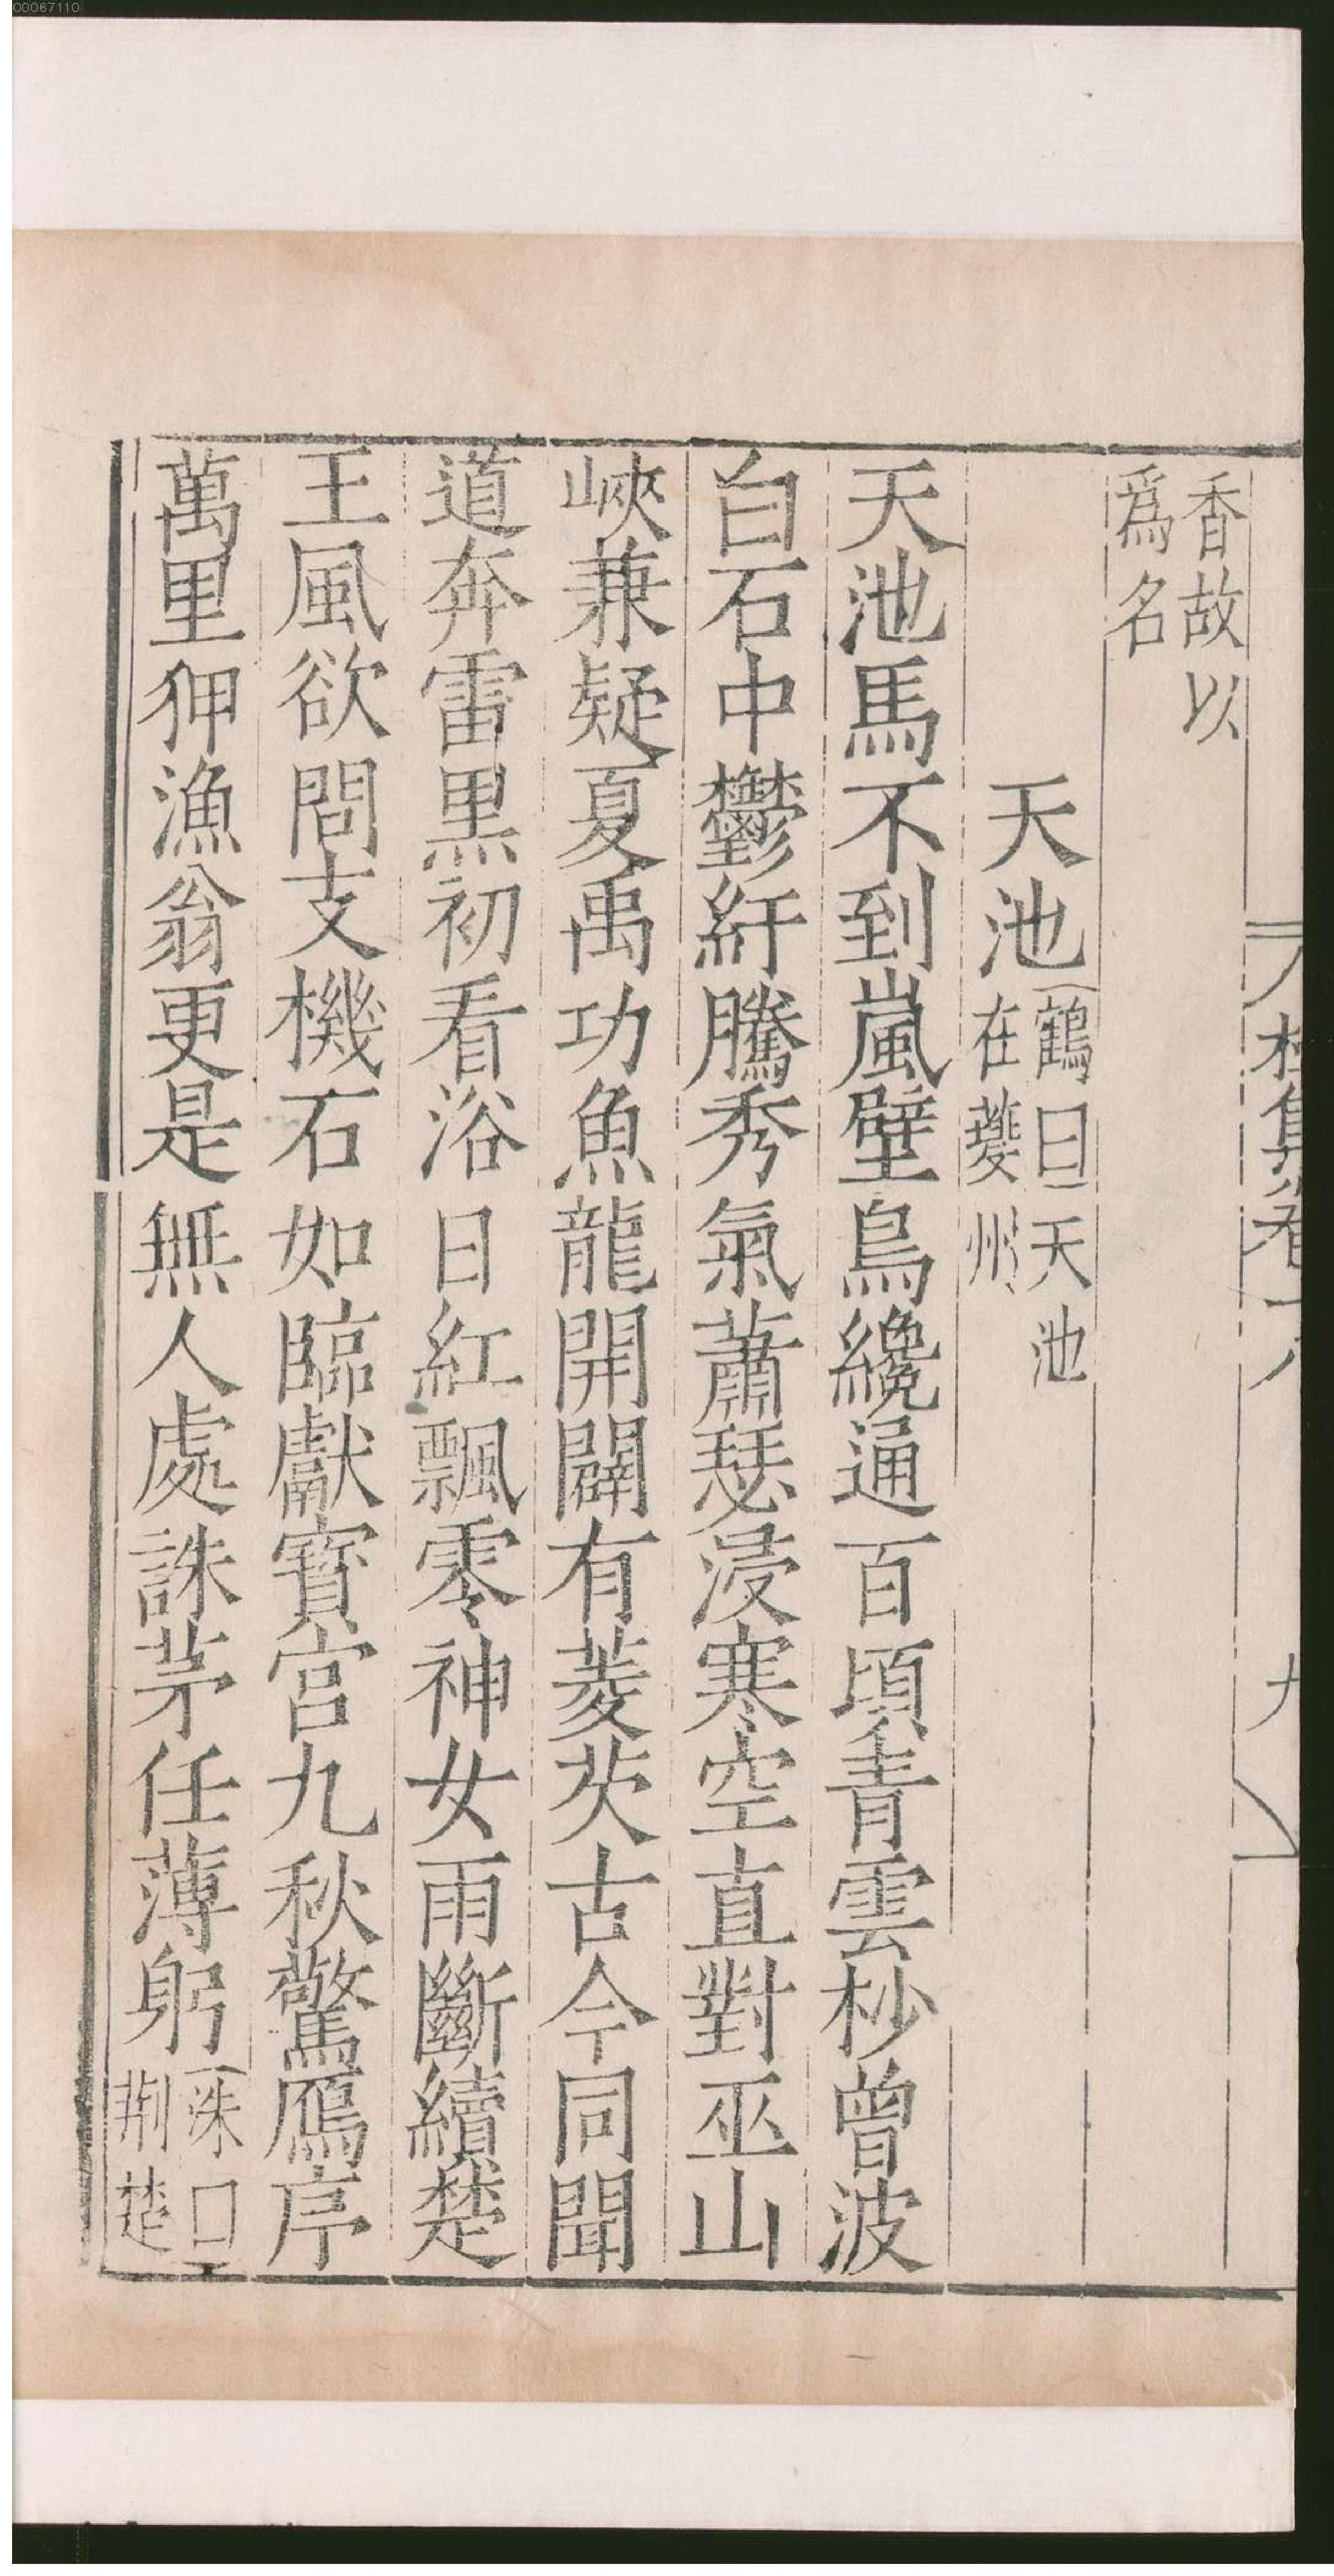 00067110
香故以
爲名
天池 鶴曰天池
在䕫州
天池馬不到嵐壁鳥纔通百頃青雲杪曾波
白石中鬱紆騰秀氣蕭瑟浸寒空直對巫山
峽兼疑夏禹功魚龍開闢有菱芡古今同聞
道奔雷黒初看浴日紅飄零神女雨斷續楚
王風欲問支機石如臨獻寶宮九秋驚鴈序
萬里狎漁翁更是無人處誅茅任薄躬 洙曰一
荆楚